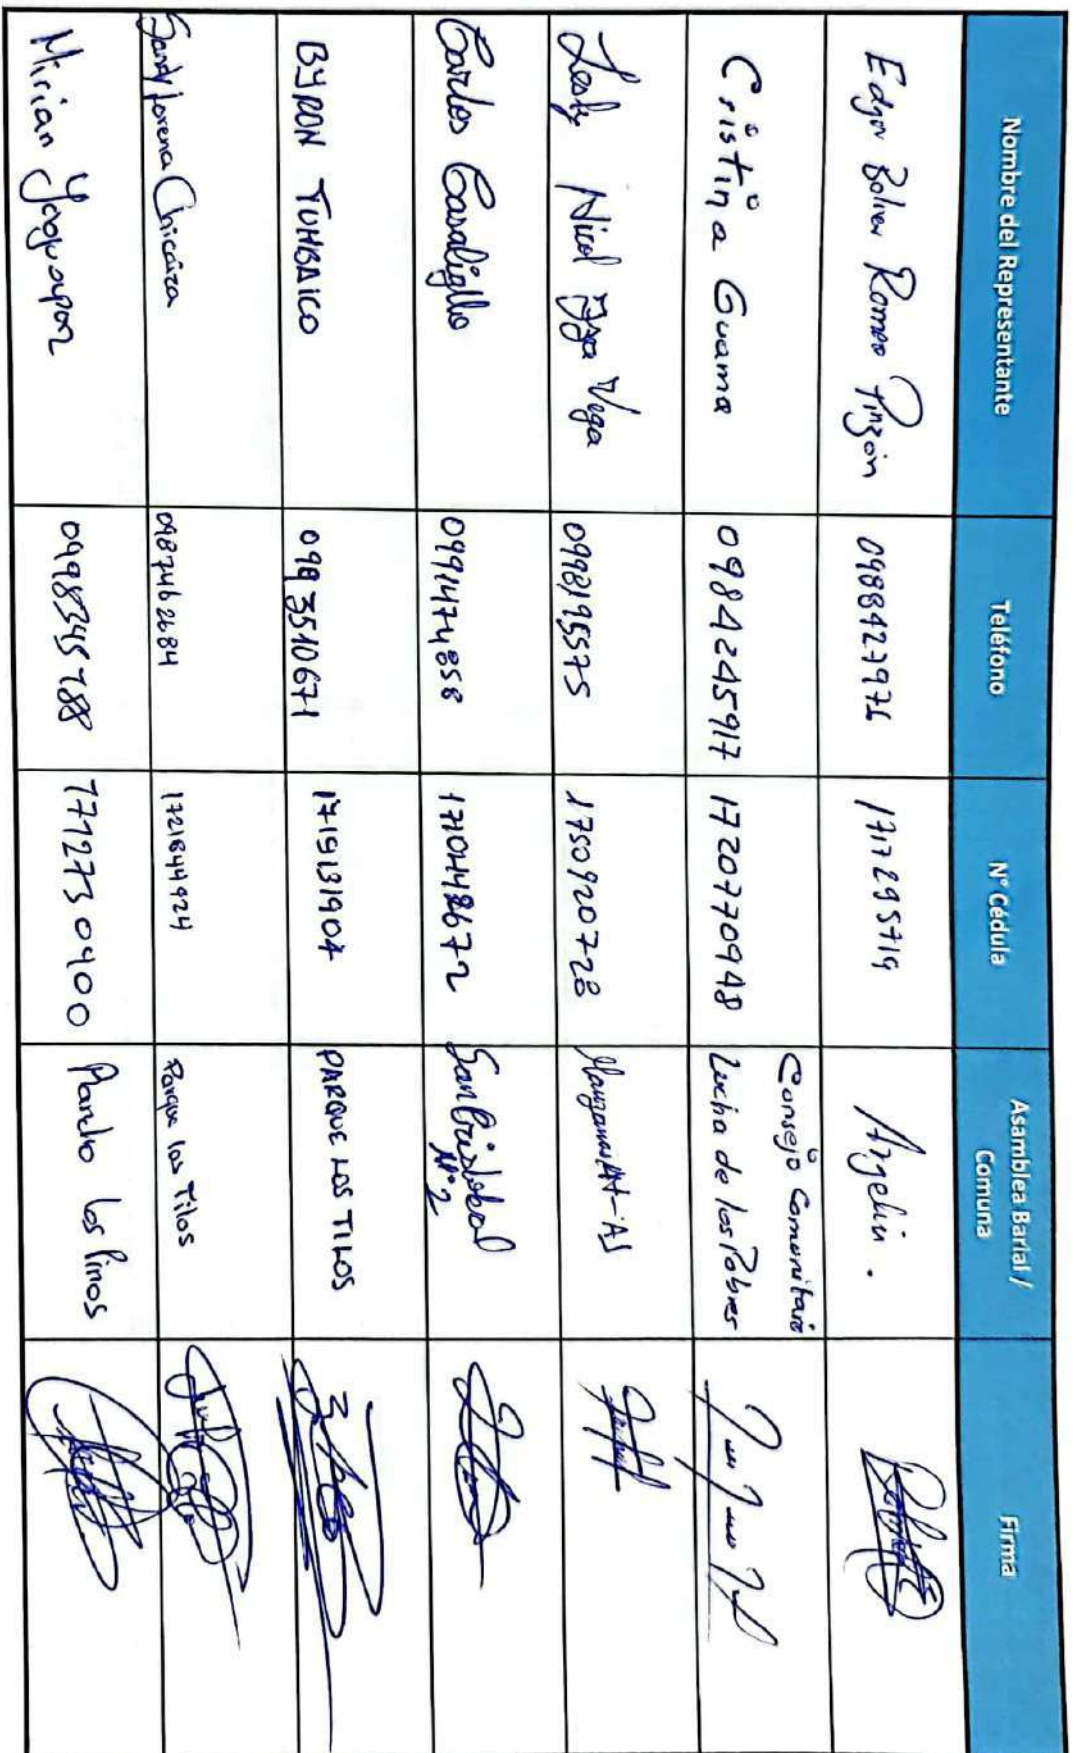 Nombre del Representante Teléfono N° Cédula Asamblea Barial / Comuna Firma
Edgar Bolívar Romero Pinzón 0988427976 1717295719 Argelia.
Cristina Guama 0984245917 1720770948 Consejo Comunitario
Lucha de los Pobres
Lesly Nicol Iza Vega 0998195575 1750920728
Carlos Casaliglla 0991474858 1710448672 San Cristobal
N° 2
BYRON TUMBAICO 0983510671 1715131904 PARQUE LOS TILOS
Sandy Lorena Chicaiza 0987462684 1721644924 Parque los Tilos
Mirian Yoguapaz 0998345788 1712730400 Pancho los Pinos